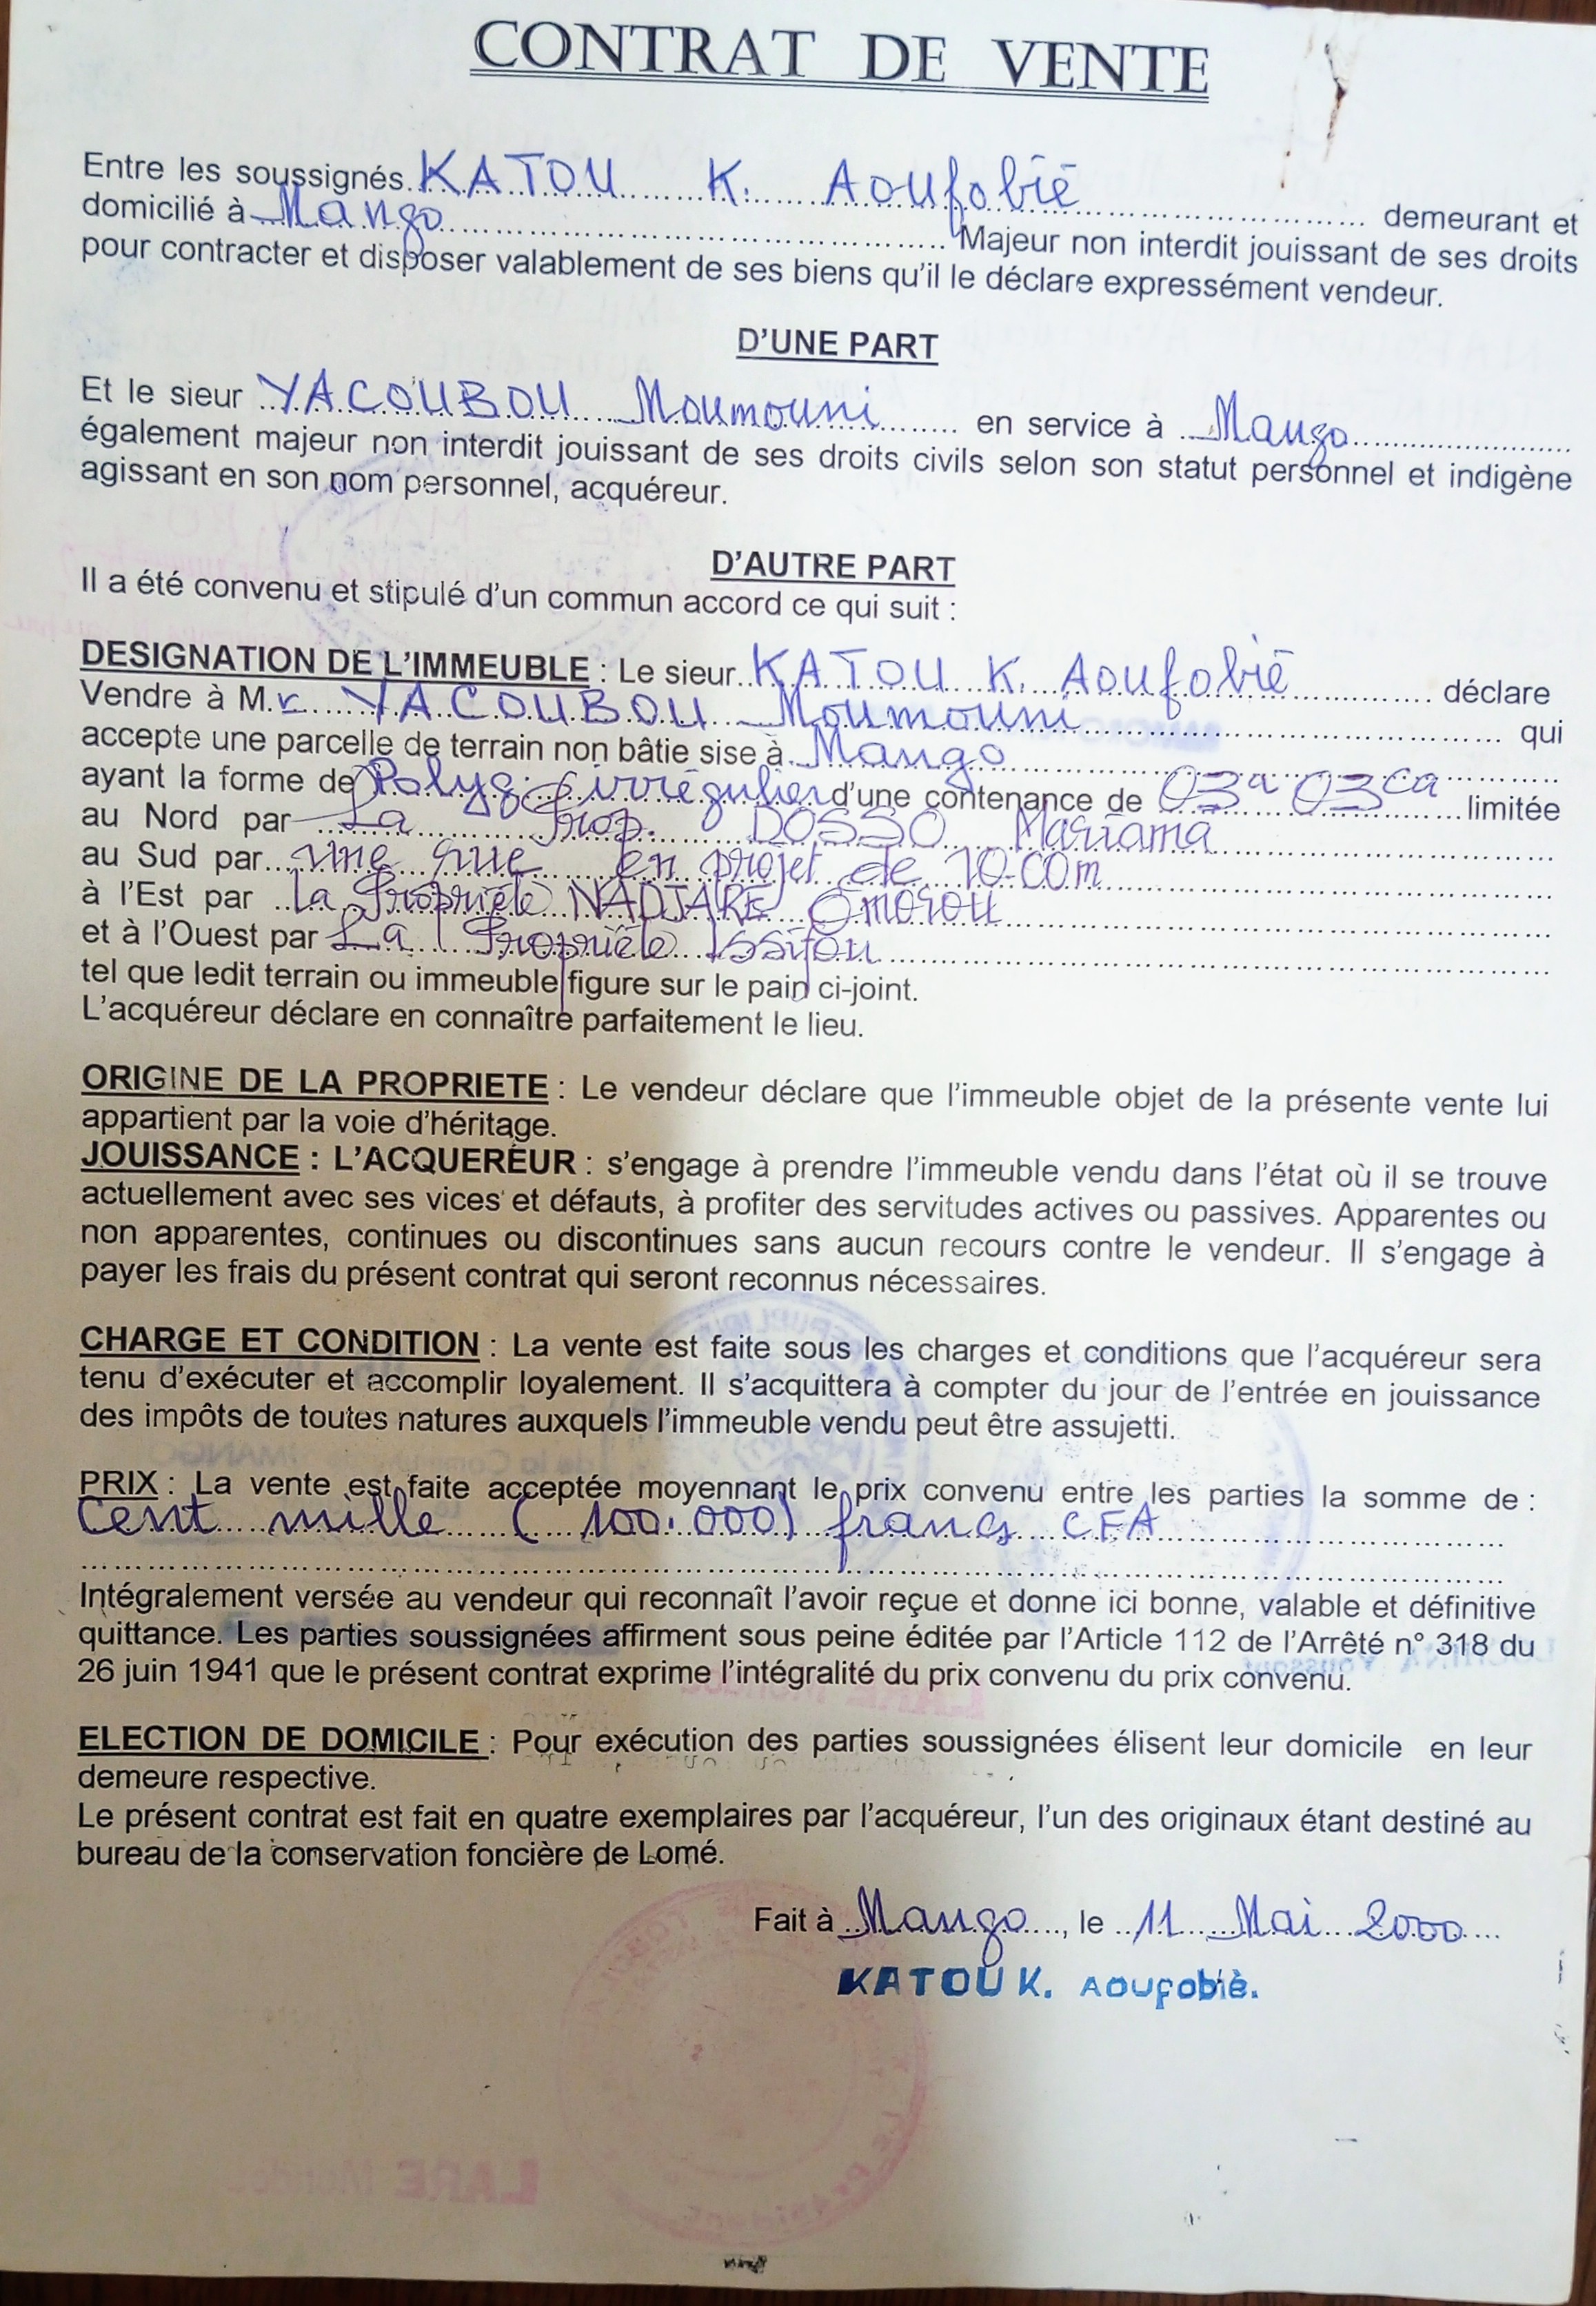 CONTRAT DE VENTE
Entre les soussignés. KATOU K. Aoufobiē demeurant et
domicilié à Mango Majeur non interdit jouissant de ses droits
pour contracter et disposer valablement de ses biens qu'il le déclare expressément vendeur.
D'UNE PART
Et le sieur YACOUBOU Moumouni en service à Mango
également majeur non interdit jouissant de ses droits civils selon son statut personnel et indigène
agissant en son nom personnel, acquéreur.
D'AUTRE PART
Il a été convenu et stipulé d'un commun accord ce qui suit :
DESIGNATION DE L'IMMEUBLE : Le sieur KATOU K. Aoufobiē déclare
Vendre à M.r YACOUBOU Moumouni qui
accepte une parcelle de terrain non bâtie sise à Mango
ayant la forme de Polyg. irrégulier d'une contenance de 03a 03ca limitée
au Nord par La Prop. DOSSO Mariama
au Sud par une rue en projet de 10.00m
à l'Est par la Propriété NADJARE Omorou
et à l'Ouest par La Propriété Issifou
tel que ledit terrain ou immeuble figure sur le pain ci-joint.
L'acquéreur déclare en connaître parfaitement le lieu.
ORIGINE DE LA PROPRIETE : Le vendeur déclare que l'immeuble objet de la présente vente lui
appartient par la voie d'héritage.
JOUISSANCE : L'ACQUEREUR : s'engage à prendre l'immeuble vendu dans l'état où il se trouve
actuellement avec ses vices et défauts, à profiter des servitudes actives ou passives. Apparentes ou
non apparentes, continues ou discontinues sans aucun recours contre le vendeur. Il s'engage à
payer les frais du présent contrat qui seront reconnus nécessaires.
CHARGE ET CONDITION : La vente est faite sous les charges et conditions que l'acquéreur sera
tenu d'exécuter et accomplir loyalement. Il s'acquittera à compter du jour de l'entrée en jouissance
des impôts de toutes natures auxquels l'immeuble vendu peut être assujetti.
PRIX : La vente est faite acceptée moyennant le prix convenu entre les parties la somme de :
Cent mille (100.000) francs CFA
Intégralement versée au vendeur qui reconnaît l'avoir reçue et donne ici bonne, valable et définitive
quittance. Les parties soussignées affirment sous peine éditée par l'Article 112 de l'Arrêté n° 318 du
26 juin 1941 que le présent contrat exprime l'intégralité du prix convenu du prix convenu.
ELECTION DE DOMICILE : Pour exécution des parties soussignées élisent leur domicile en leur
demeure respective.
Le présent contrat est fait en quatre exemplaires par l'acquéreur, l'un des originaux étant destiné au
bureau de la conservation foncière de Lomé.
Fait à Mango, le 11 Mai 2000
KATOU K. Aoufobiè.
LARE